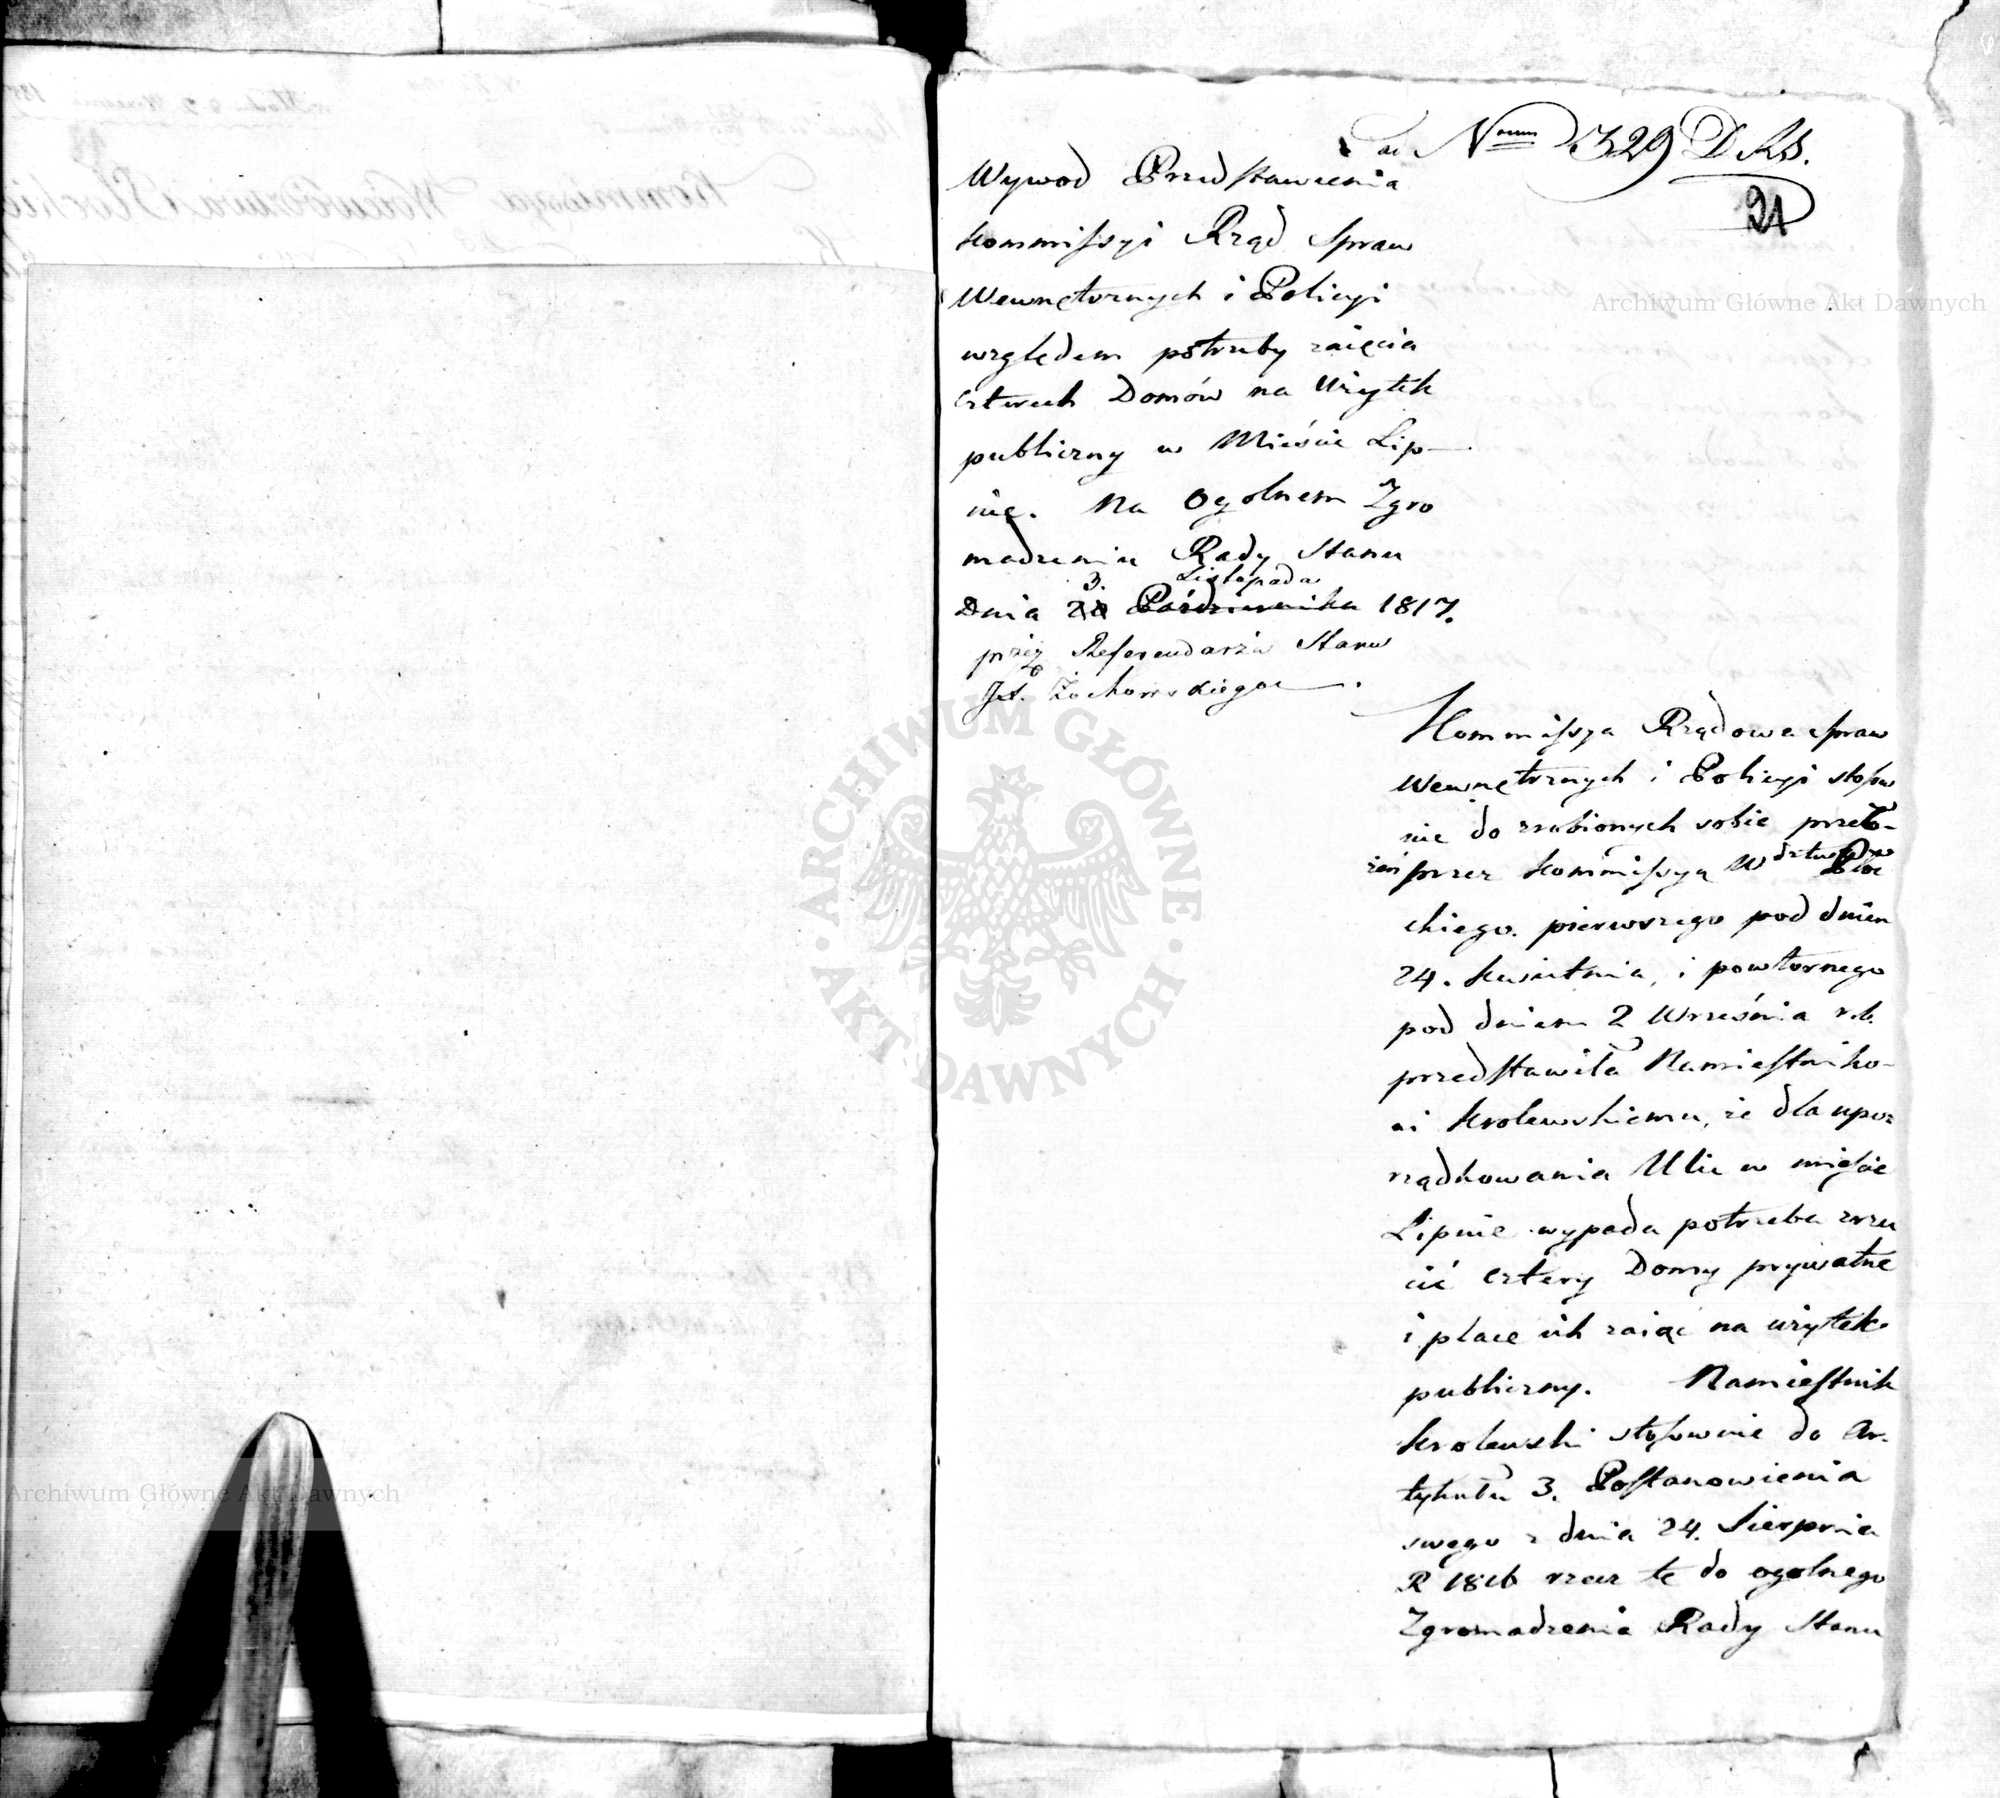 ad N<sup>rum</sup> 329 D.R.S.
91
Wywod Przedstawienia
Kommissyi Rząd Spraw
Wewnętrznych i Policyi
względem potrzeby zaięcia
czterech Domów na Użytek
publiczny w Mieście Lip-
nie. Na Ogolnem Zgro
madzeniu Rady Stanu
3. Listopada
Dnia Października 1817.
przez Referendarza Stanu
Żochowskiego
Kommissya Rządowa Spraw
Wewnętrznych i Policyi stosow
nie do zrobionych sobie przeło-
żeń przez Kommissyą Wdztwa Płoc
kiego. pierwszego pod dniem
24. Kwietnia, i powtornego
pod dniem 2 Września r.b.
przedstawiła Namiestniko-
wi Krolewskiemu, że dla upor
rządkowania Ulic w mieście
Lipnie wypada potrzeba zrzu
cić cztery Domy prywatne
i place ich zaiąć na użytek
publiczny. Namiestnik
Krolewski stosownie do Ar-
tykułu 3. Postanowienia
swego z dnia 24. Sierpnia
R 1816 rzecz tę do ogolnego
Zgromadzenia Rady Stanu
Kommissya Woiewodztwa Płockie
Archiwum Główne Akt Dawnych
Archiwum Główne Akt Dawnych
ARCHIWUM GŁÓWNE · AKT DAWNYCH ·